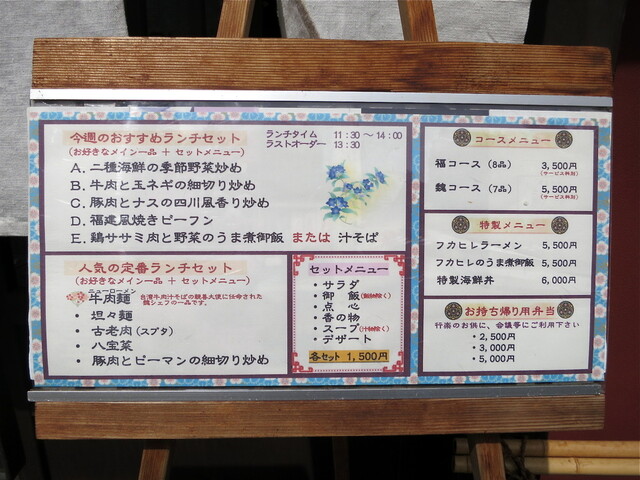 今週のおすすめランチセット
(お好きなメイン一品 + セットメニュー)
ランチタイム 11:30 ～ 14:00
ラストオーダー 13:30
A. 二種海鮮の季節野菜炒め
B. 牛肉と玉ネギの細切り炒め
C. 豚肉とナスの四川風香り炒め
D. 福建風焼きビーフン
E. 鶏ササミ肉と野菜のうま煮御飯 または 汁そば
人気の定番ランチセット
(お好きなメイン一品 + セットメニュー)
ニューローメン
牛肉麺
台湾牛肉汁そばの親善大使に任命された
魏シェフの一品です。
・坦々麺
・古老肉(スブタ)
・八宝菜
・豚肉とピーマンの細切り炒め
セットメニュー
・サラダ
・御 飯(麺類除く)
・点 心
・香の物
・スープ(汁そば除く)
・デザート
各セット 1,500円
コースメニュー
福コース (8品) 3,500円
(サービス料別)
魏コース (7品) 5,500円
(サービス料別)
特製メニュー
フカヒレラーメン 5,500円
フカヒレのうま煮御飯 5,500円
特製海鮮丼 6,000円
お持ち帰り用弁当
行楽のお供に、会議等にご利用下さい
・2,500円
・3,000円
・5,000円